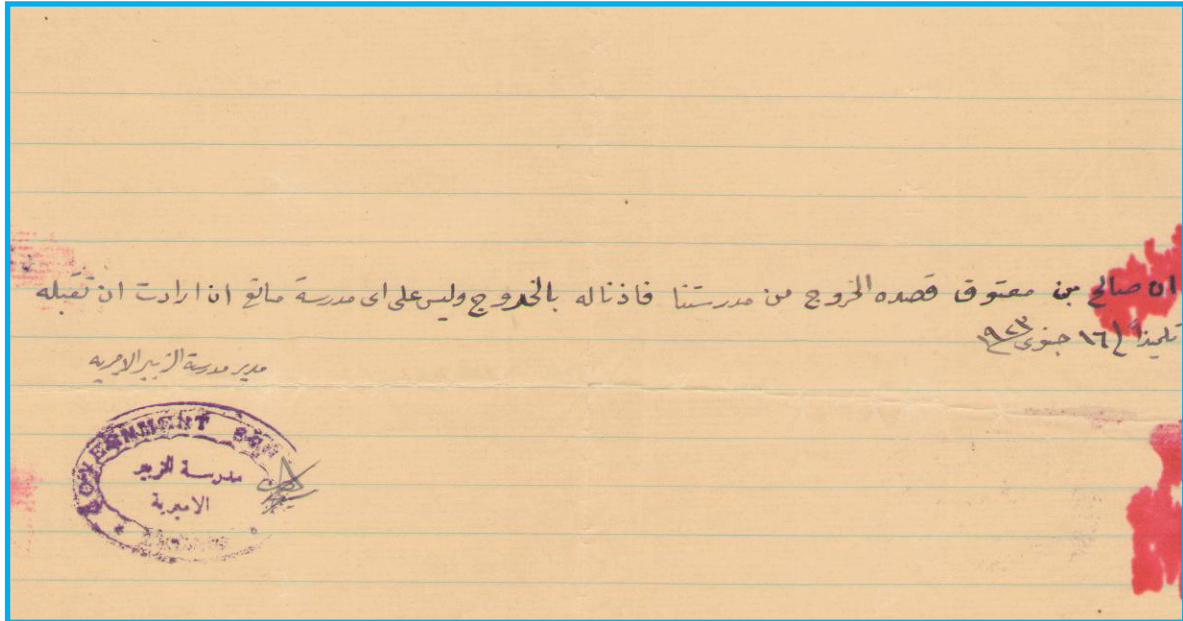 ان صالح بن معتوق قصده الخروج من مدرستنا فاذناله بالخروج وليس على اى مدرسة مانع ان ارادت ان تقبله
تلميذاً ١٦ جنورى ١٩٢٣
مدير مدرسة الزبير الاميريه
GOVERNMENT SCH
مدرسة الزبير
الاميرية